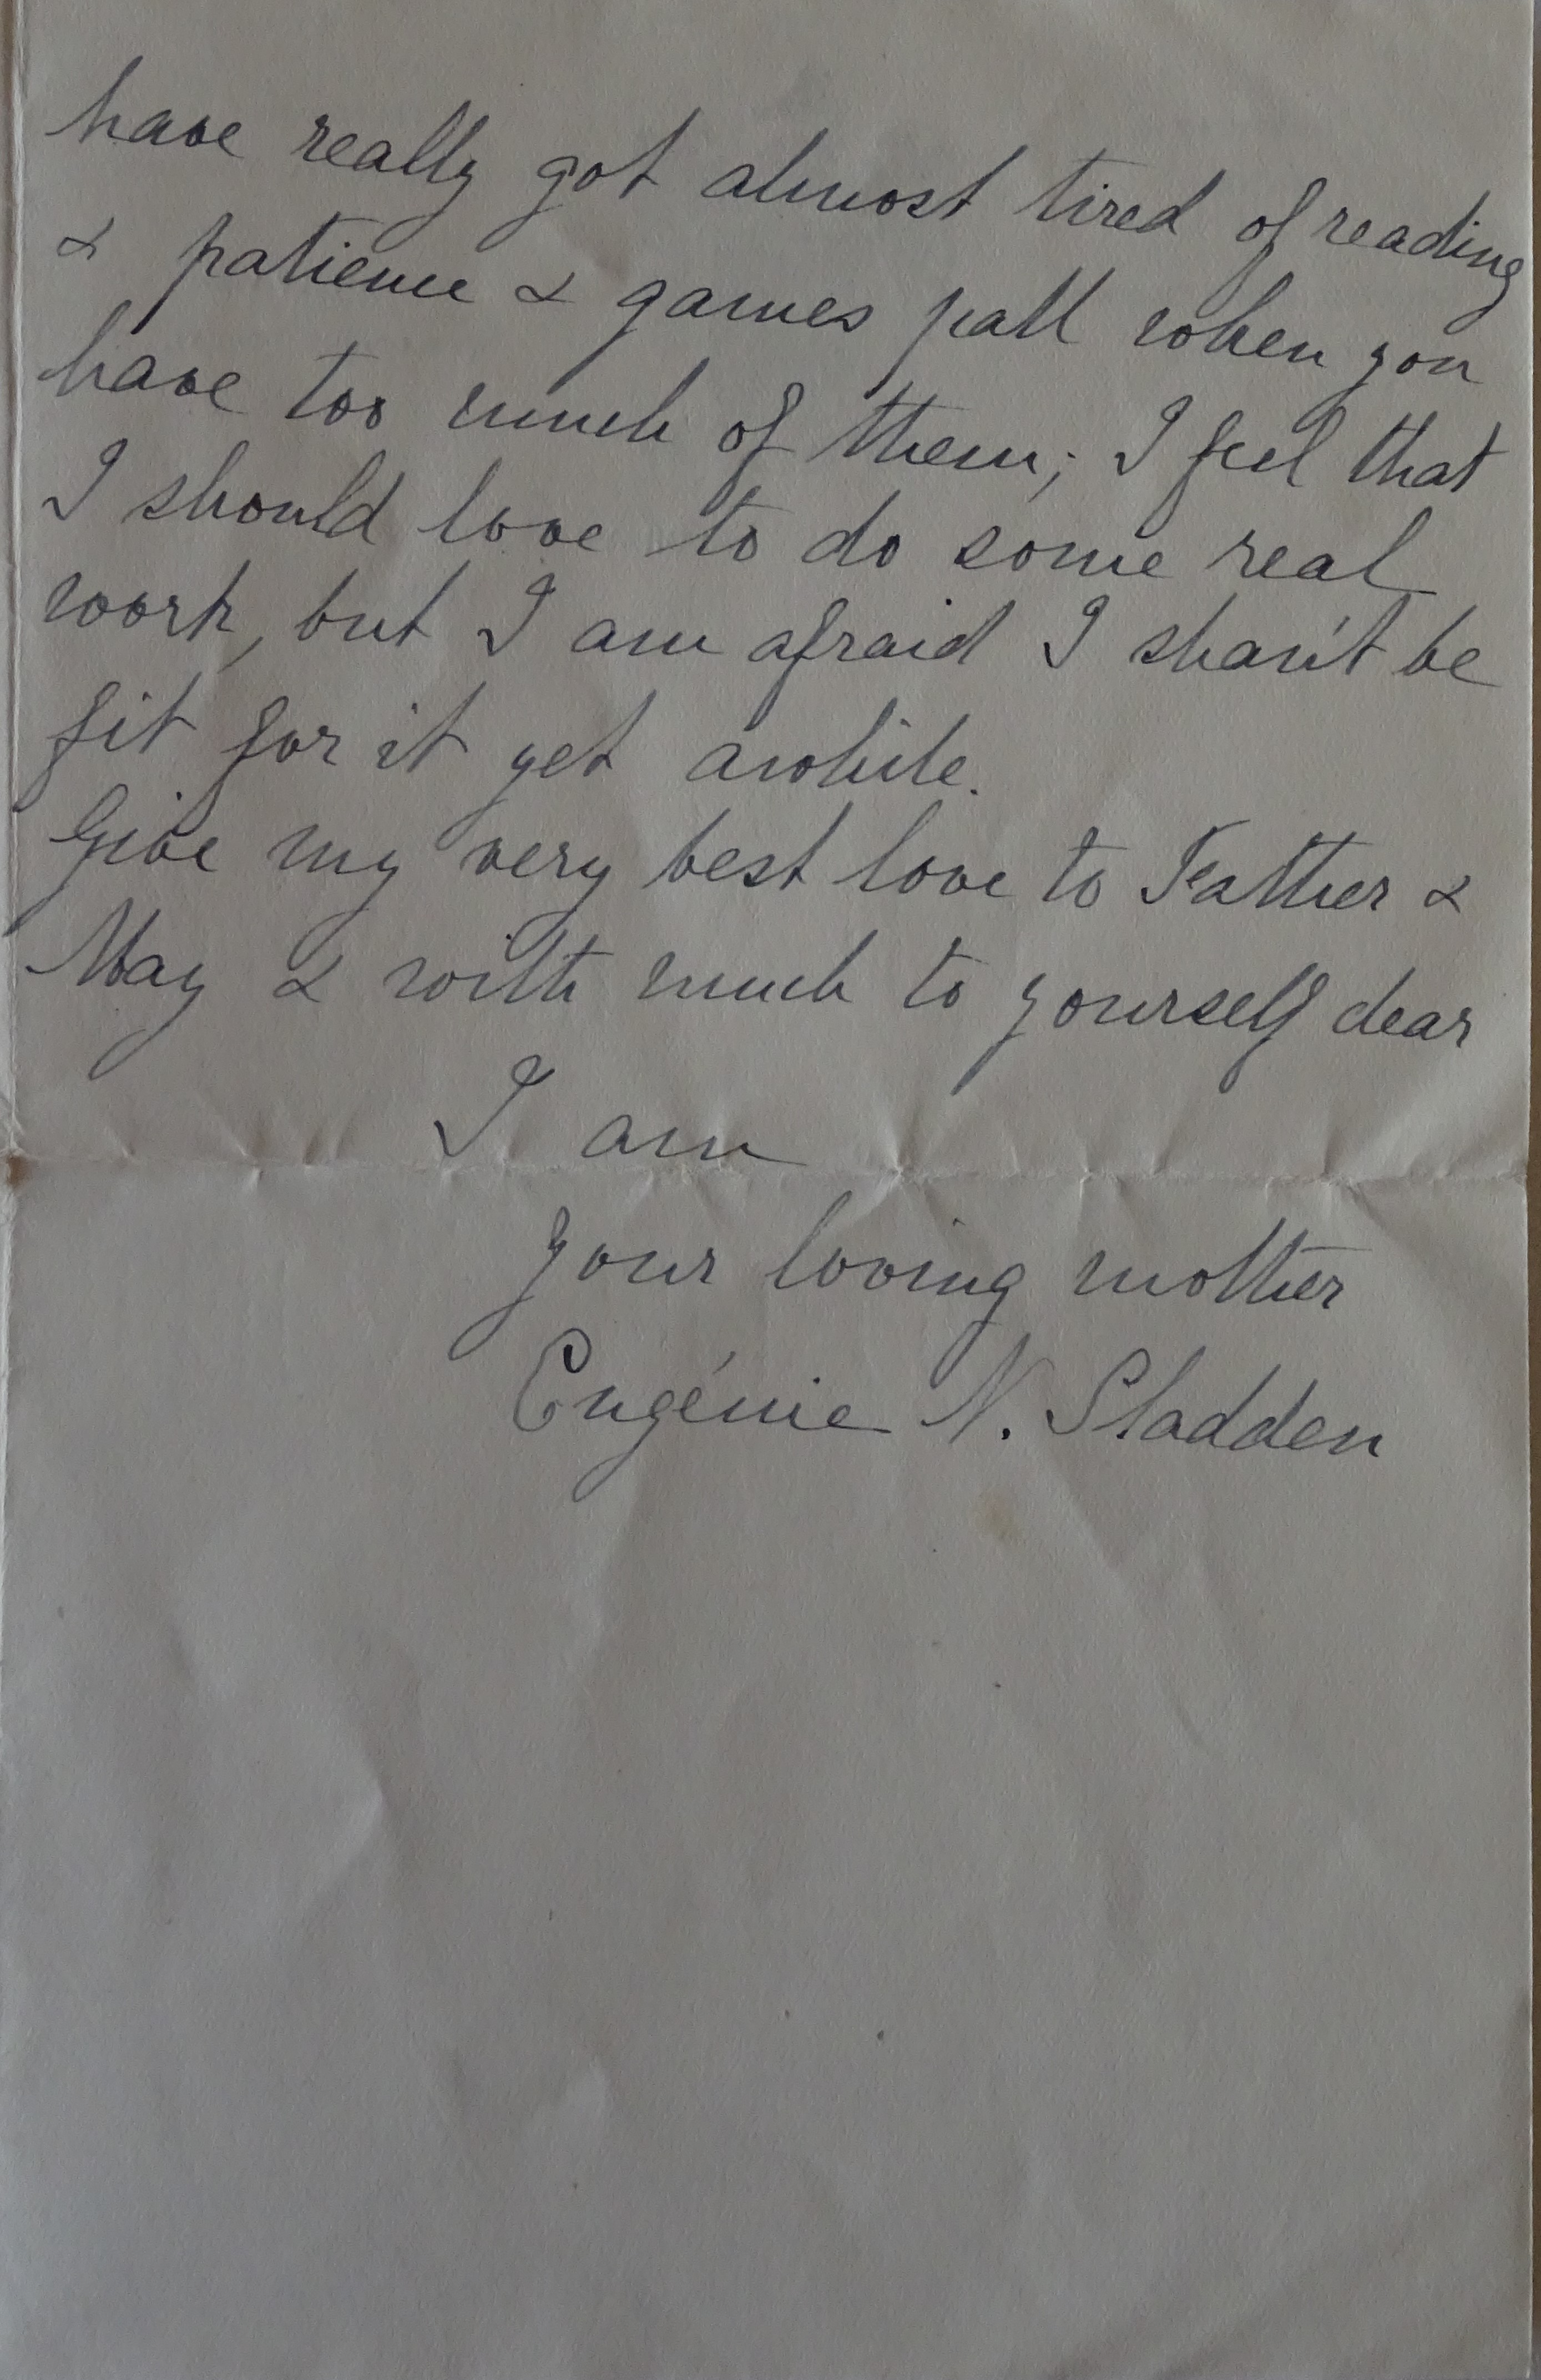 have really got almost tired of reading
& patience & games pall when you
have too much of them; I feel that
I should love to do some real
work, but I am afraid I shan't be
fit for it yet awhile.
Give my very best love to Father &
May & with much to yourself dear
I am
your loving mother
Eugénie N. Sladden